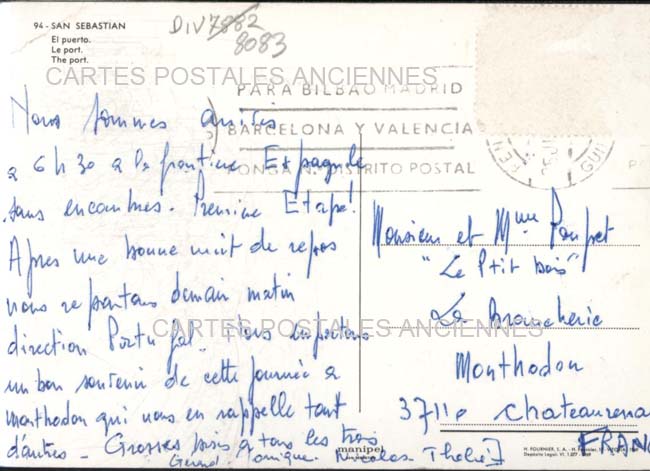 94 - SAN SEBASTIAN
El puerto.
Le port.
The port.
DIV 7882
8083
CARTES POSTALES ANCIENNES
PARA BILBAO MADRID
BARCELONA Y VALENCIA
PONGA N. DISTRITO POSTAL
Nous sommes arrivés
a 6 h 30 a la frontiere Espagnole
sans encombres. Premiere Etape!
Apres une bonne nuit de repos
nous repartons demain matin
direction Portugal. Nous emportons
un bon souvenir de cette journée a
monthodon qui nous en rappelle tant
d'autres - Grosses bises a tous les trois
Gerard Nicolas
Monsieur et Mme
"Le Ptit bois"
La
Monthodon
37110 Chateaurena
FRANC
CARTES POSTALES ANCIENNES
manipel
H. FOURNIER, S. A.
Depósito Legal: VI.